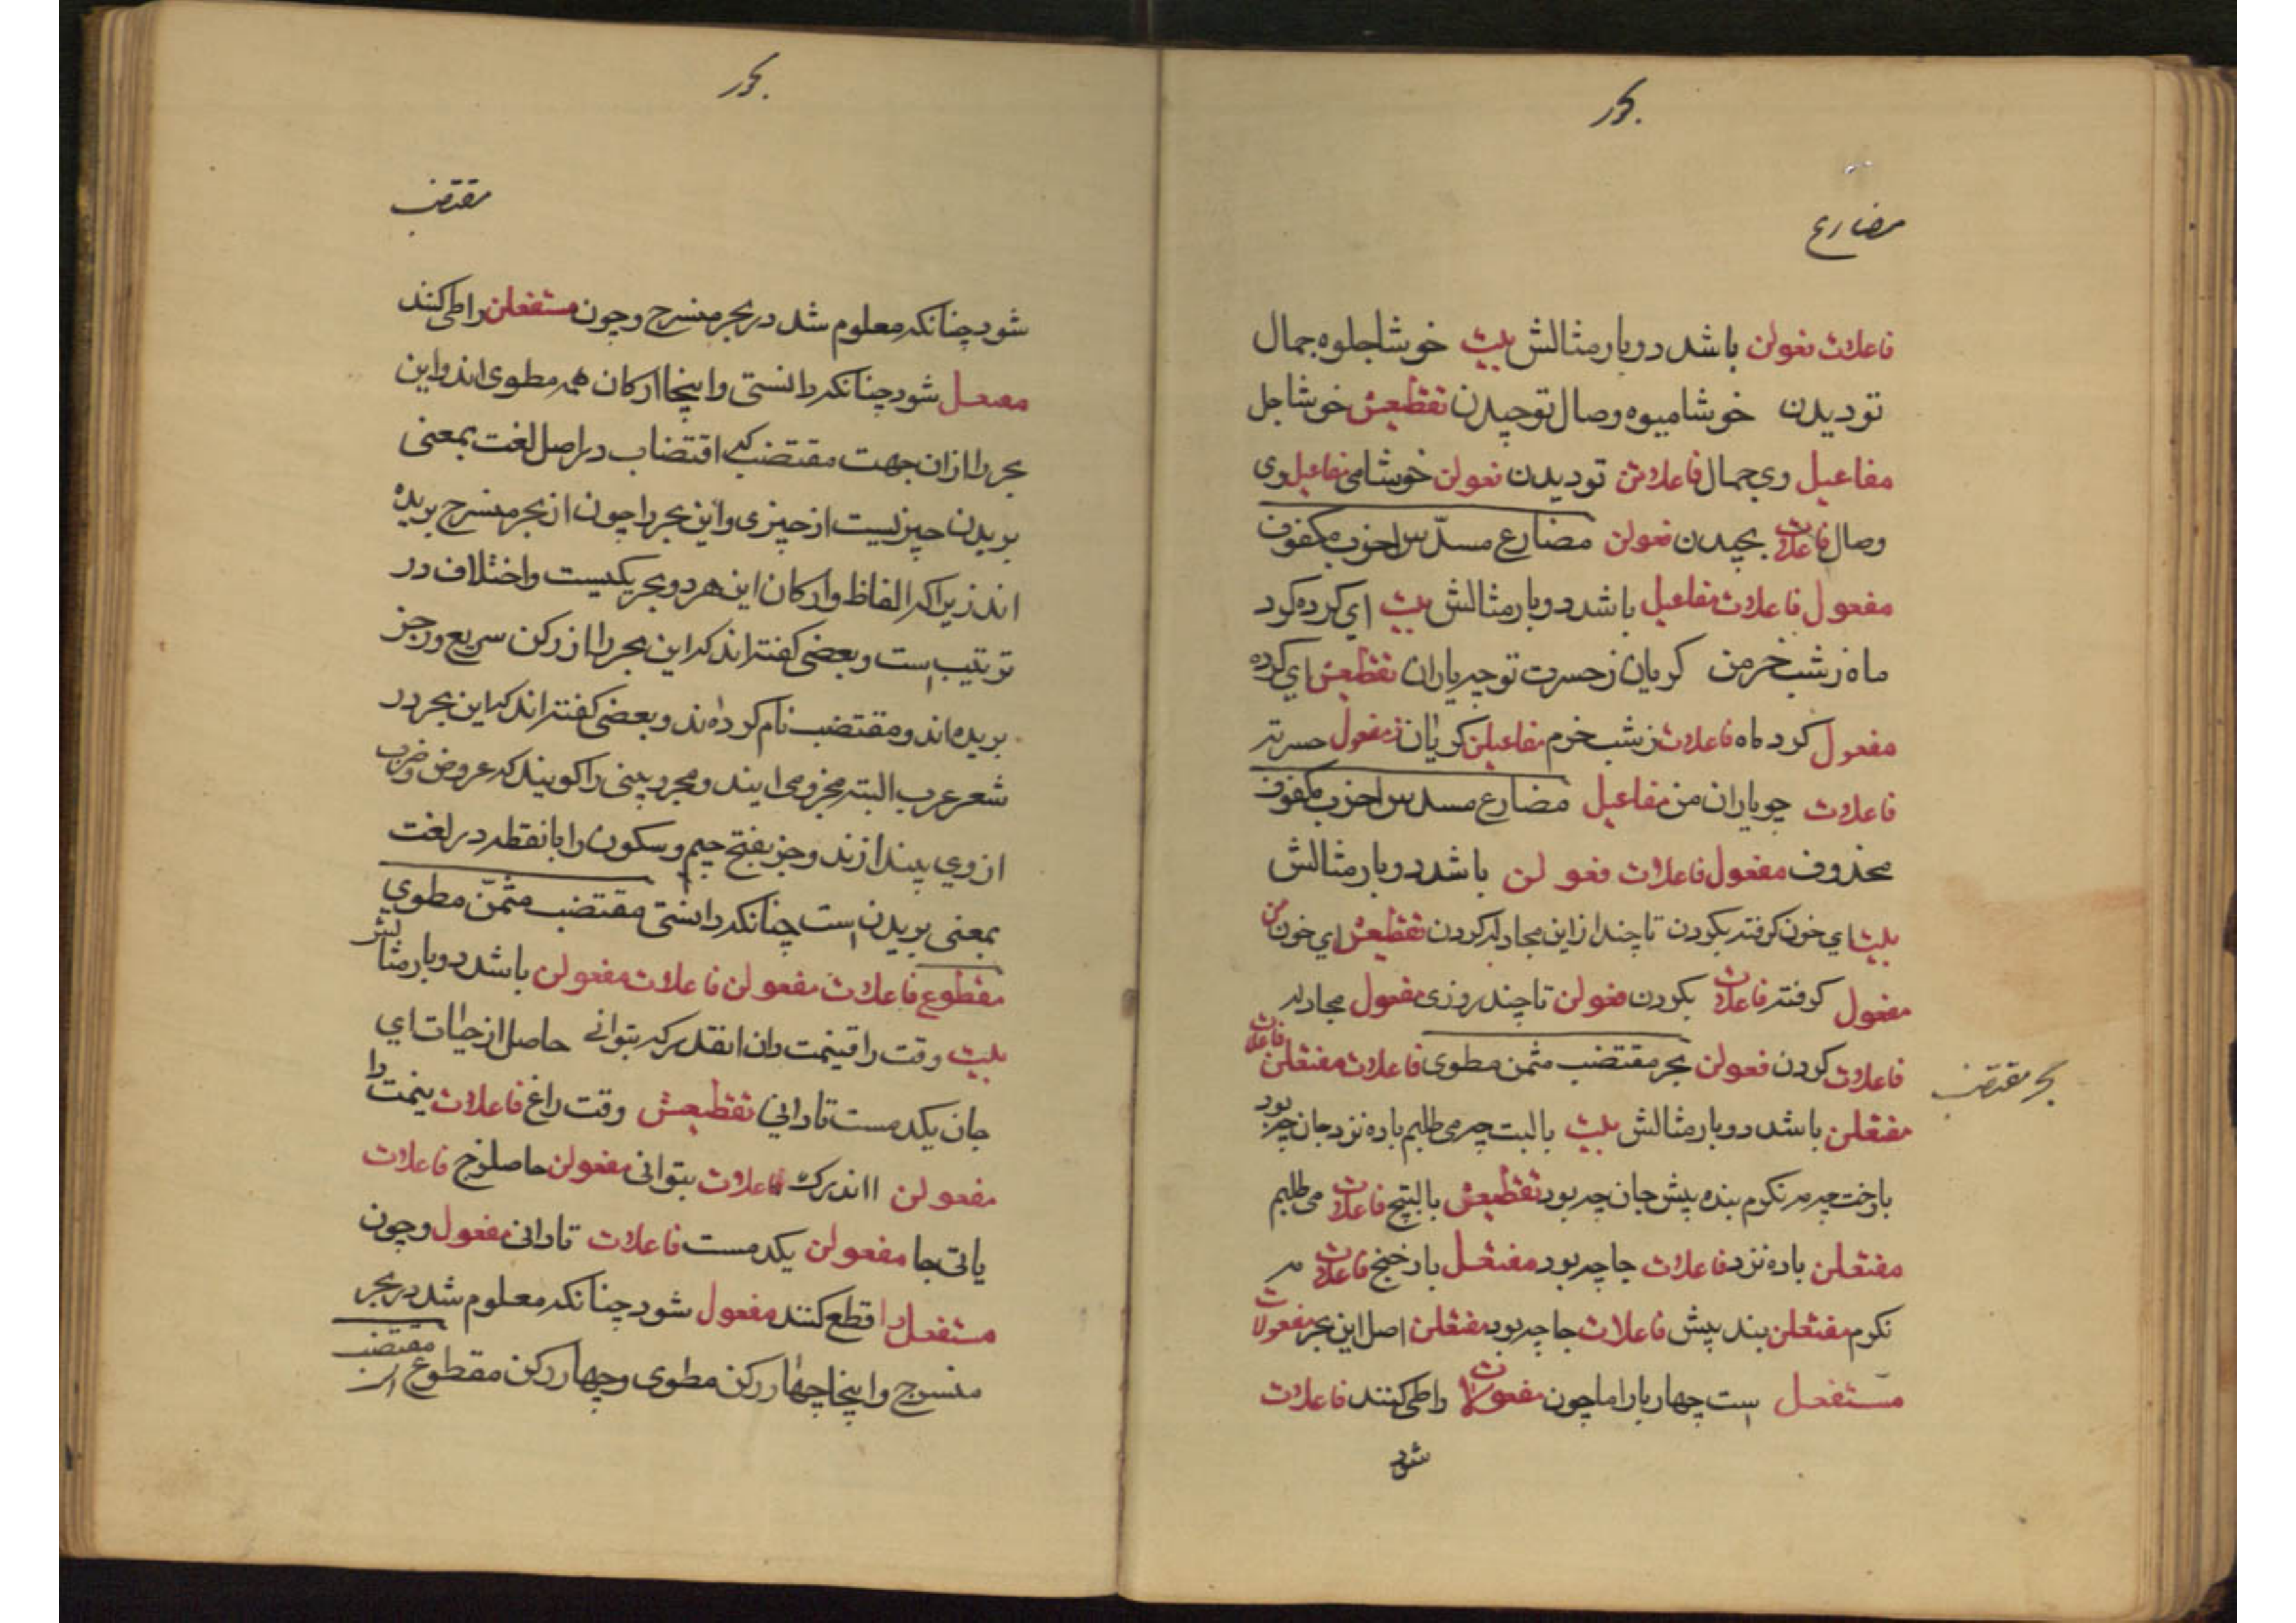 بحور
مضارع
فاعلات فعولن باشد دوبار مثالش بیت خوشا جلوه جمال
تو دیدن خوشا میوه وصال تو چیدن تقطیعش خوشا جل
مفاعیل وی جمال فاعلاتن تو دیدن فعولن خوشا می مفاعیل وی
وصال فاعلات بچیدن فعولن مضارع مسدّس اخرب مکفوف
مفعول فاعلات مفاعیل باشد دوبار مثالش بیت ای کرده کرد
ماه ز شب خرمن کریان ز حسرت تو چو باران تقطیعش ای کرده
مفعول کرد ماه فاعلات ز شب خرم مفاعیلن کریان ز مفعول حسرتتو
فاعلات چو باران من مفاعیل مضارع مسدس اخرب مکفوف
محذوف مفعول فاعلات فعولن باشد دوبار مثالش
بیت ای خون کرفته بکردن تا چند از این مجادله کردن تقطیعش ای خون من
مفعول کرفته فاعلات بکردن فعولن تا چند روزی مفعول مجادله
فاعلات کردن فعولن بحر مقتضب مثمن مطوی فاعلات مفتعلن فاعلات
بحر مقتضب
مفتعلن باشد دوبار مثالش بیت با لبت چه می طلبم باده نزد جان چه بود
با رخت چه مه نکرم بنده پیش جان چه بود تقطیعش بالبتچ فاعلات می طلبم
مفتعلن باده نزد فاعلات جا چه بود مفتعل بارخنج فاعلات مه
نکرم مفتعلن بند پیش فاعلات جا چه بود مفتعلن اصل این بحر مفعولات
مستفعل است چهار بار اما چون مفعولات را طی کنند فاعلات
شود
بحور
مقتضب
شود چنانکه معلوم شد در بحر منسرح و چون مستفعلن را طی کنند
مفتعل شود چنانکه دانستی و اینجا ارکان همه مطوی اند و این
بحر را از ان جهت مقتضب که اقتضاب در اصل لغت بمعنی
بریدن چیزیست از چیزی و این بحر را چون از بحر منسرح بریده
اند زیرا که الفاظ و ارکان این هر دو بحر یکیست و اختلاف در
ترتیب است و بعضی کفته اند که این بحر را از رکن سریع و رجز
بریده اند و مقتضب نام کرده اند و بعضی کفته اند که این بحر در
شعر عرب البته مجزو می ایند و مجزو بیتی را کویند که عروض و ضرب
از وی بیندازند و جز بفتح جیم و سکون را با نقطه در لغت
بمعنی بریدن است چنانکه دانستی مقتضب مثمّن مطوی
مقطوع فاعلات مفعولن فاعلات مفعولن باشد دوبار مثالش
بیت وقت را قینمت دان انقدر که بتوانی حاصل از حیات ای
جان یکدمست تا دانی تقطیعش وقت راغ فاعلات ینمت را
مفعولن ااندرک فاعلات بتوانی مفعولن حاصلزح فاعلات
یاتی جا مفعولن یکدمست فاعلات تا دانی مفعول و چون
مستفعل را قطع کنند مفعول شود چنانکه معلوم شد در بحر
منسرح و اینجا چهار رکن مطوی و چهار رکن مقطوع از مقتضب